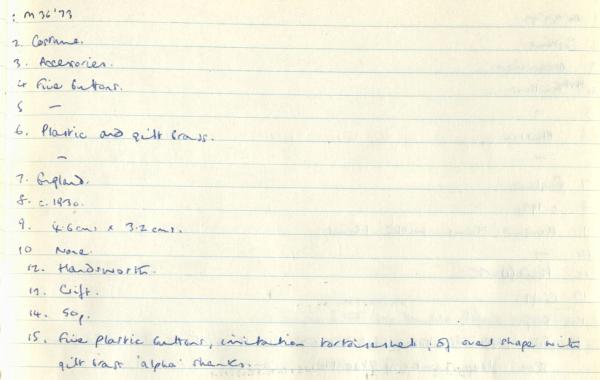 : M36'73
2. Costume.
3. Accessories.
4. Five buttons.
5 —
6. Plastic and gilt brass.
—
7. England.
8. c.1930.
9. 4.6cms x 3.2cms.
10 None.
12. Handsworth.
13. Gift.
14. 50p.
15. Five plastic buttons, imitation tortoiseshell; of oval shape with
gilt brass 'alpha' shanks.